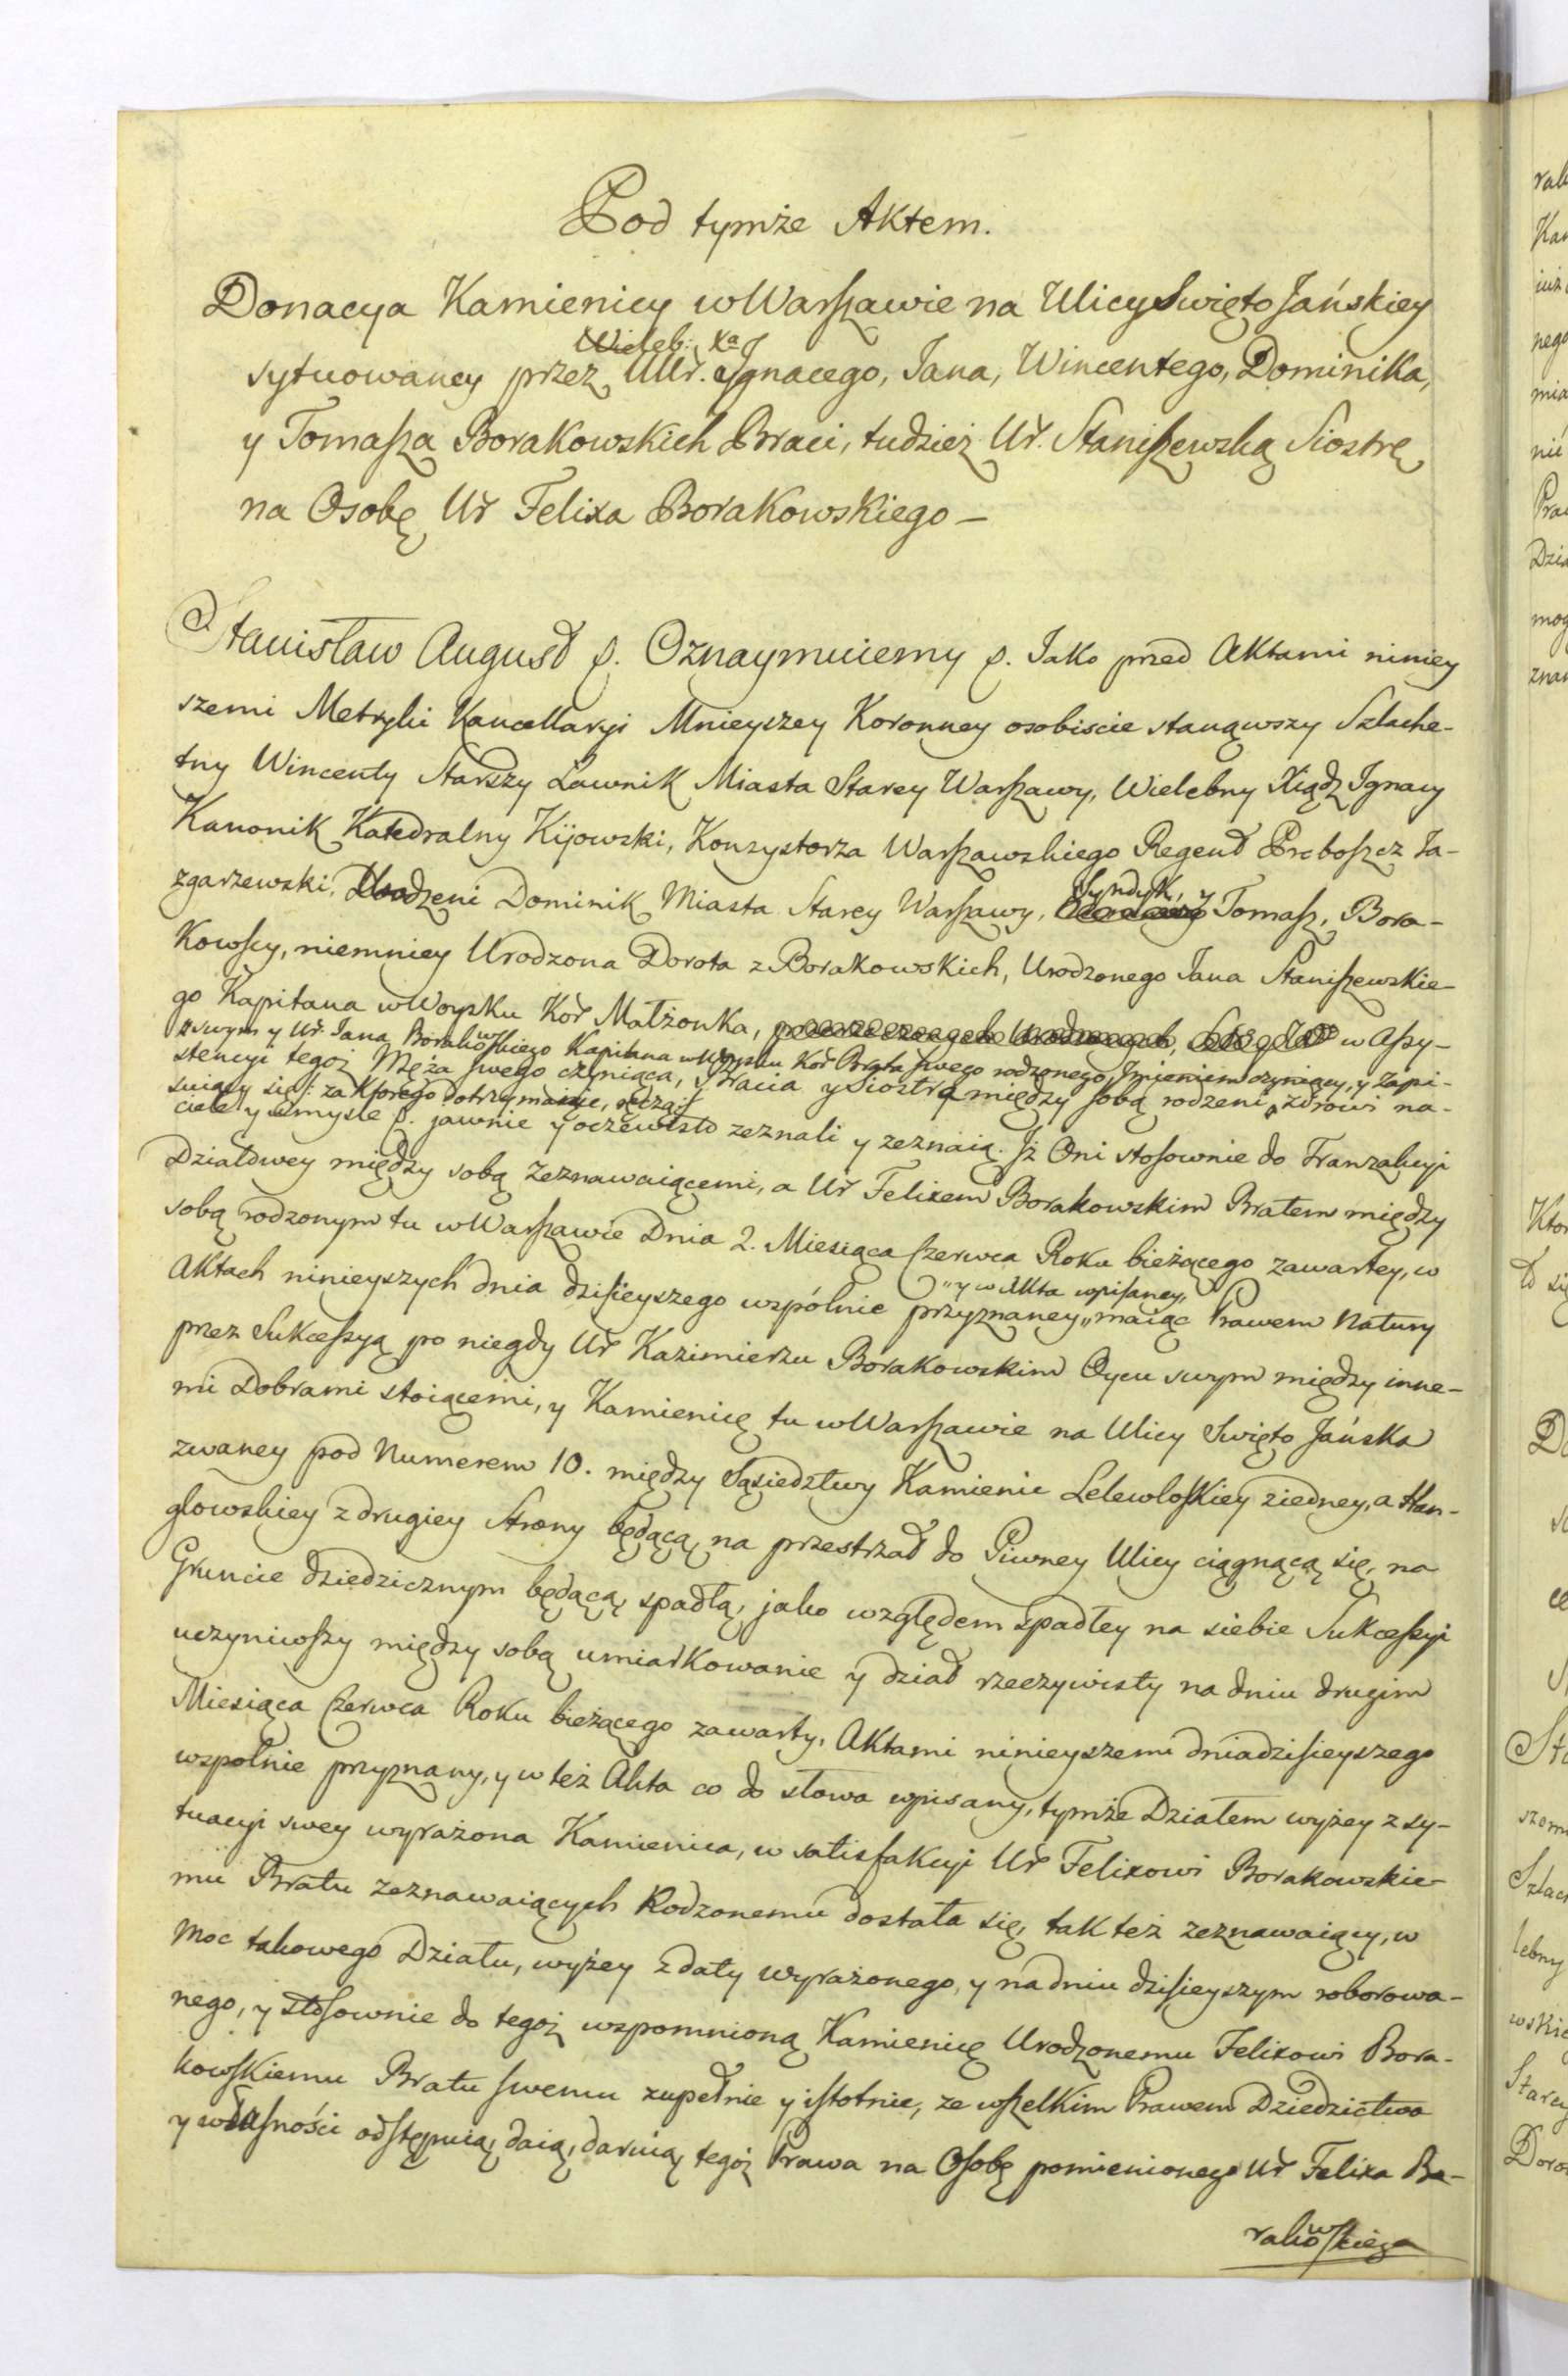 Pod tymże Aktem.
Donacya Kamienicy w Warszawie na Ulicy Swięto Jańskiey
Wieleb: Xa
sytuowaney przez UUr. Jgnacego, Jana, Wincentego, Dominika,
y Tomasza Borakowskich Braci, tudzież Ur. Staniszewską Siostrę
na Osobę Ur Felixa Borakowskiego —
Stanisław August p. Oznaymuiemy p. Jako przed Aktami niniey
szemi Metryki Kancellaryi Mnieyszey Koronney osobiscie stanąwszy Szlache-
tny Wincenty Starszy Ławnik Miasta Starey Warszawy, Wielebny Xiądz Jgnacy
Kanonik Katedralny Kijowski, Konsystorza Warszawskiego Regent Proboszcz Ja-
Syndyk, y
zgarzewski, Urodzeni Dominik Miasta Starey Warszawy, Tomasz, Bora-
kowscy, niemniey Urodzona Dorota z Borakowskich, Urodzonego Jana Staniszewskie-
go Kapitana w Woysku Kor Małżonka, w Assy-
"swym y Ur. Jana Borakowskiego Kapitana w Woysku Kor Brata swego rodzonego, Jmieniem czyniący, y Zapi-
stencyi tegoż Męża swego czyniąca, Bracia y Siostra między sobą rodzeni, zdrowi na
suiący się /: za ktorego dotrzymanie, ręczą :/
ciele y umysle p. jawnie y oczewisto zeznali y zeznaią. Jż Oni stosownie do Tranzakcyi
Działowey między sobą Zeznawaiącemi, a Ur Felixem Borakowskim Bratem między
sobą rodzonym tu w Warszawie Dnia 2. Miesiąca Czerwca Roku bieżącego zawartey, w
"y w Akta wpisaney,
Aktach ninieyszych dnia dzisieyszego wspólnie przyznaney," maiąc Prawem Natury
przez Sukcessyą po niegdy Ur Kazimierzu Borakowskim Oycu swym między inne-
mi Dobrami stoiącemi, y Kamienicę tu w Warszawie na Ulicy Swięto Jańska
zwaney pod Numerem 10. między Sąsiedztwy Kamienic Lelewloskiey ziedney, a Han-
glowskiey z drugiey Strony będącą, na przestrzał do Piwney Ulicy ciągnącą się, na
Gruncie dziedzicznym będącą, spadłą, jako względem spadłey na siebie Sukcessyi
uczyniwszy między sobą umiarkowanie y dział rzeczywisty na dniu drugim
Miesiąca Czerwca Roku bieżącego zawarty, Aktami ninieyszemi dnia dzisieyszego
wspolnie przyznany, y w też Akta co do słowa wpisany, tymże Działem wyżey z sy-
tuacyi swey wyrażona Kamienica, w satisfakcyi Ur Felixowi Borakowskie-
mu Bratu zeznawaiących Rodzonemu dostała się, tak też zeznawaiący, w
moc takowego Działu, wyżey z daty wyrażonego, y na dniu dzisieyszym roborowa-
nego, y stosownie do tegoż wspomnioną Kamienicę Urodzonemu Felixowi Bora-
kowskiemu Bratu swemu zupełnie y istotnie, ze wszelkim Prawem Dziedzictwa
y własności odstępuią, daią, daruią, tegoż Prawa na Osobę pomienionego Ur Felixa Bo-
rakowskiego